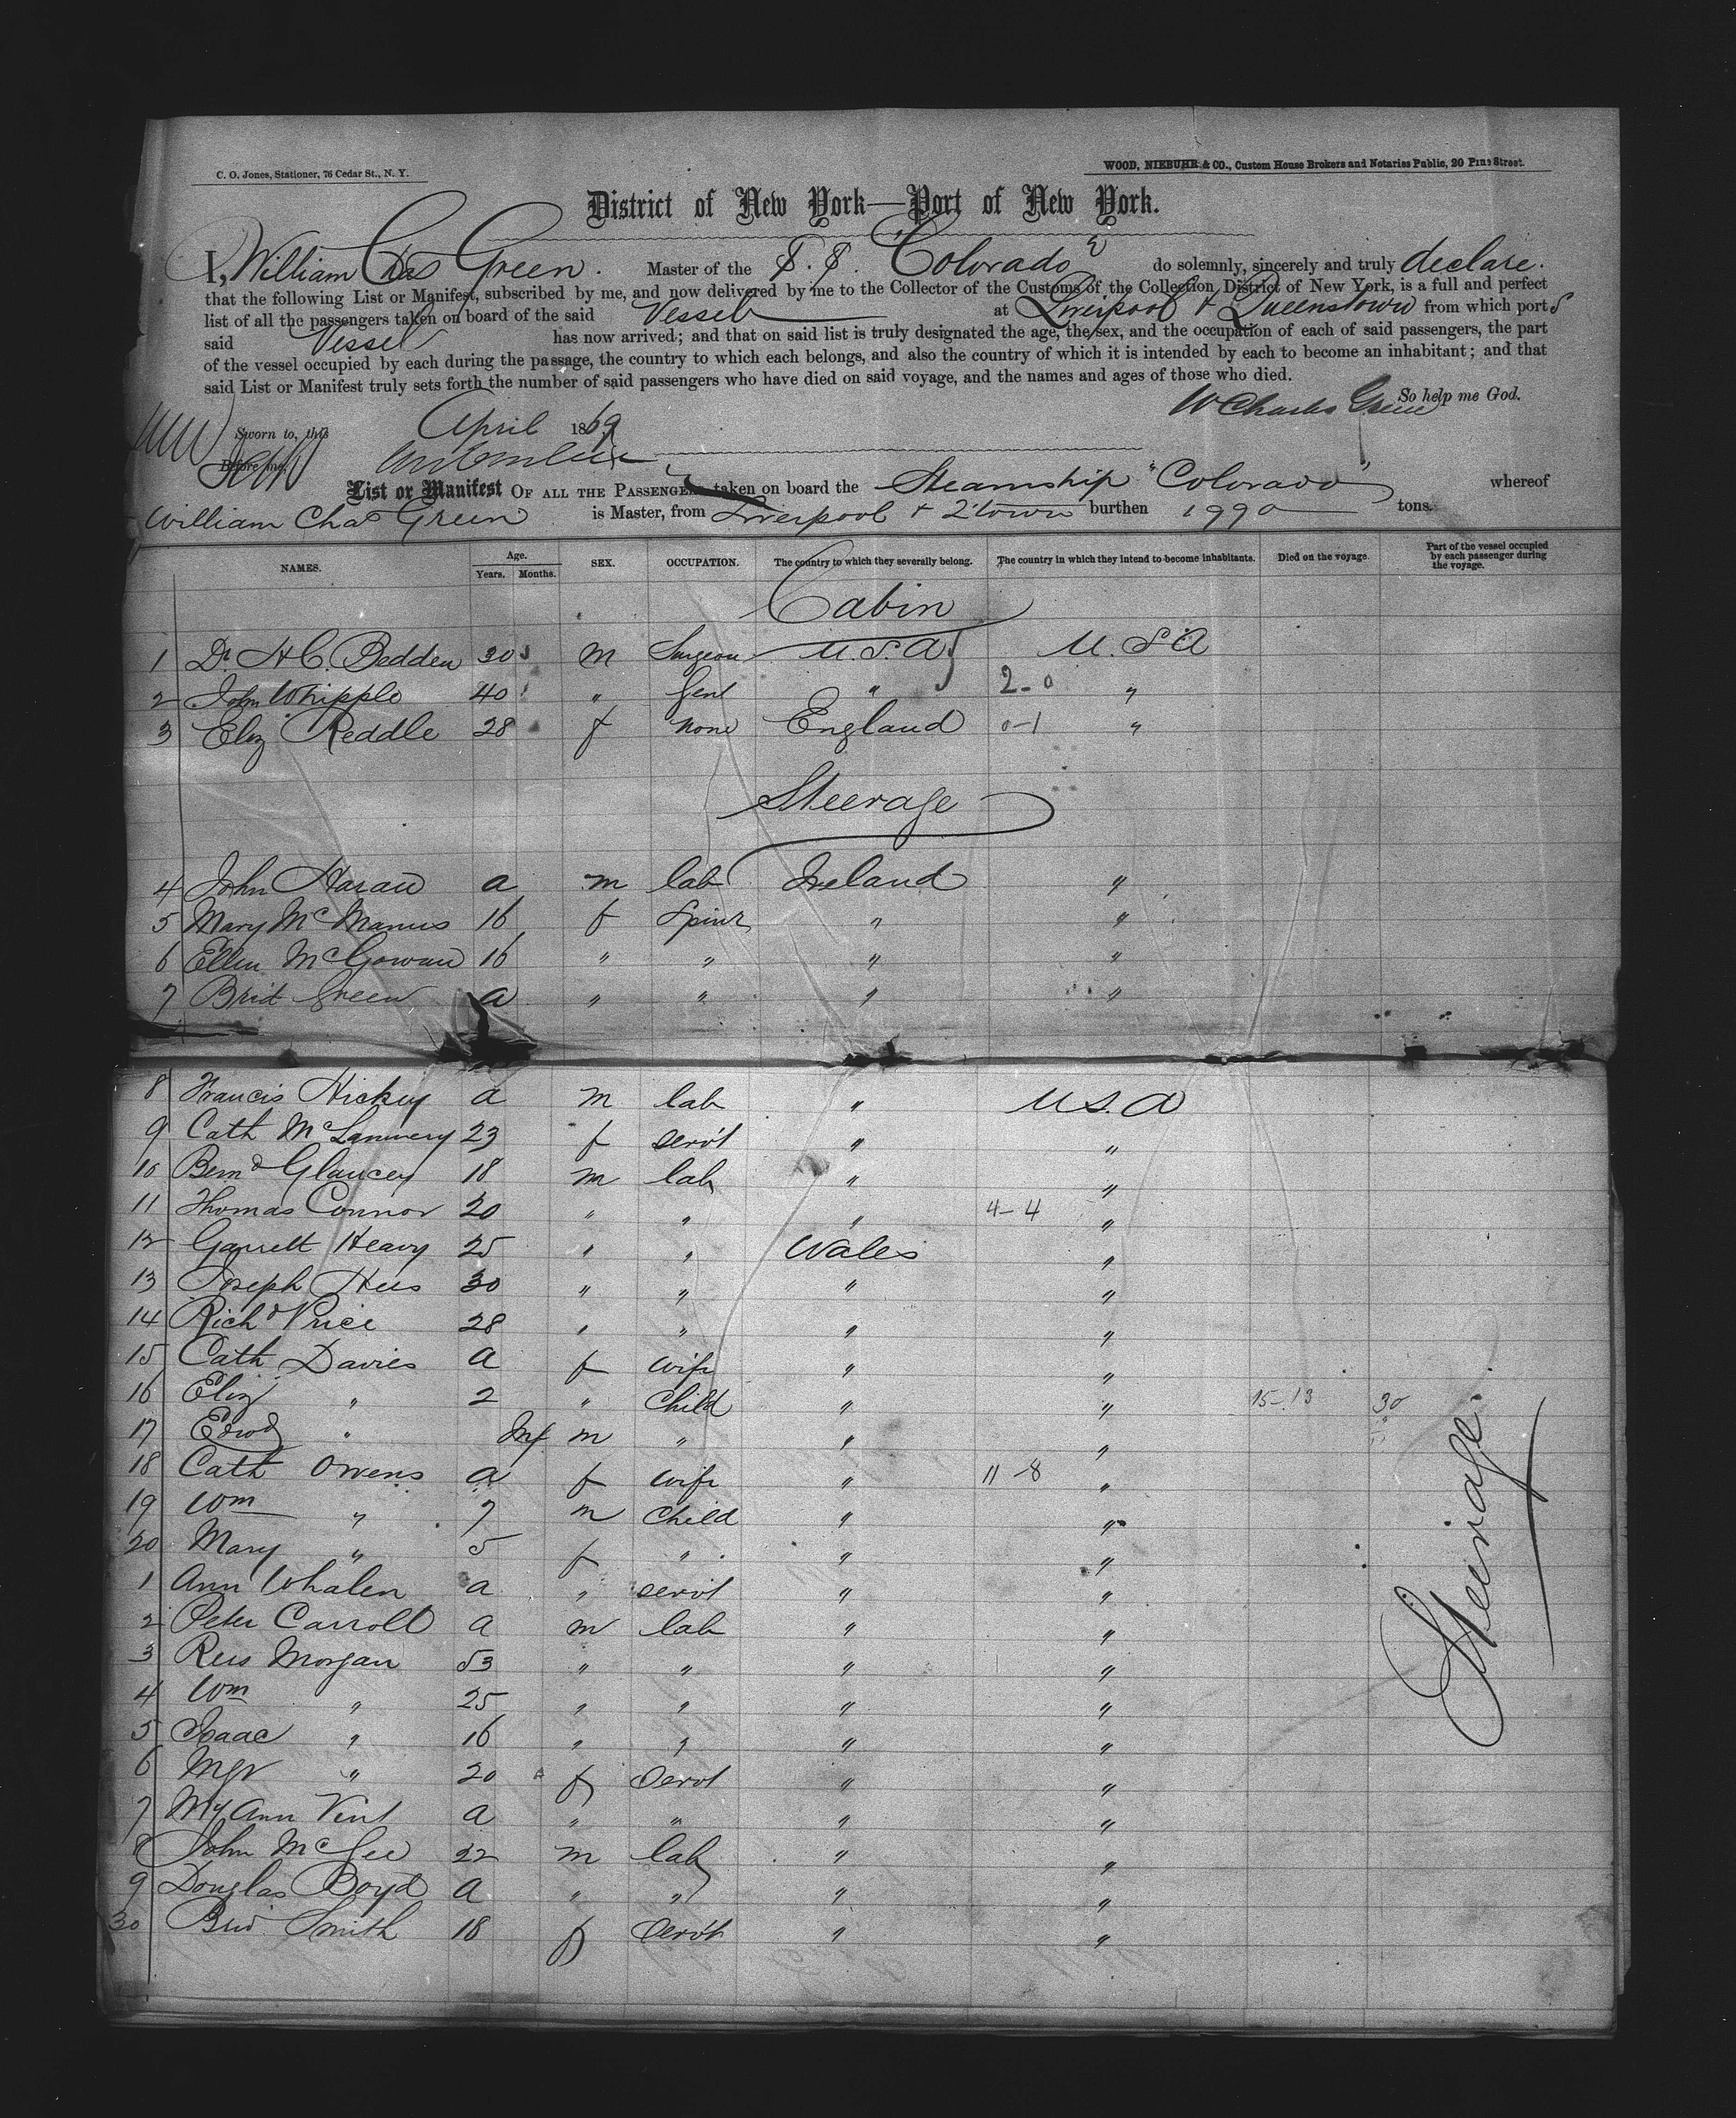 C. O. Jones, Stationer, 76 Cedar St., N. Y.
WOOD, NIEBUHR & CO., Custom House Brokers and Notaries Public, 20 Pine Street.
District of New York—Port of New York.
I, William Chas Green. Master of the S. S. "Colorado" do solemnly, sincerely and truly declare.
that the following List or Manifest, subscribed by me, and now delivered by me to the Collector of the Customs of the Collection District of New York, is a full and perfect
list of all the passengers taken on board of the said Vessel at Liverpool & Queenstown from which ports
said Vessel has now arrived; and that on said list is truly designated the age, the sex, and the occupation of each of said passengers, the part
of the vessel occupied by each during the passage, the country to which each belongs, and also the country of which it is intended by each to become an inhabitant; and that
said List or Manifest truly sets forth the number of said passengers who have died on said voyage, and the names and ages of those who died.
So help me God.
W Charles Green
Sworn to, this April 1869
Before me,
List or Manifest OF ALL THE PASSENGERS taken on board the Steamship "Colorado" whereof
William Chas Green is Master, from Liverpool & Q'town burthen 1990 tons.
NAMES. Age. Years. Months. SEX. OCCUPATION. The country to which they severally belong. The country in which they intend to become inhabitants. Died on the voyage. Part of the vessel occupied by each passenger during the voyage.
Cabin
1 Dr H C. Bedden 30 m Surgeon U.S.A U.S.A
2 John Whipple 40 " Gent " 2-0 "
3 Eliz Reddle 28 f None England 0-1 "
Steerage
4 John Haran a m lab Ireland "
5 Mary McManus 16 f Spinr " "
6 Ellen McGowan 16 " " " "
7 Brid Green a " " " "
8 Francis Hickey a m lab " U.S.A
9 Cath 23 f servt " "
10 Bernd Glancey 18 m lab " "
11 Thomas Connor 20 " " " 4-4 "
12 Garrett Heavy 25 " " Wales "
13 Joseph 30 " " " "
14 Richd Price 28 " " " "
15 Cath Davies a f wife " "
16 Eliz " 2 " Child " " 15-13 30
17 Edwd " Inf m " " "
18 Cath Owens a f wife " 11-8 "
19 Wm " 7 m Child " "
20 Mary " 5 f " " "
1 Ann Whalen a " servt " "
2 Peter Carroll a m lab " "
3 Rees Morgan 53 " " " "
4 Wm " 25 " " " "
5 Isaac " 16 " " " "
6 Mgt " 20 f Servt " "
7 My Ann Vint a " " " "
8 John McGee 22 m lab " "
9 Douglas Boyd a " " " "
30 Brid Smith 18 f Servt " "
Steerage.